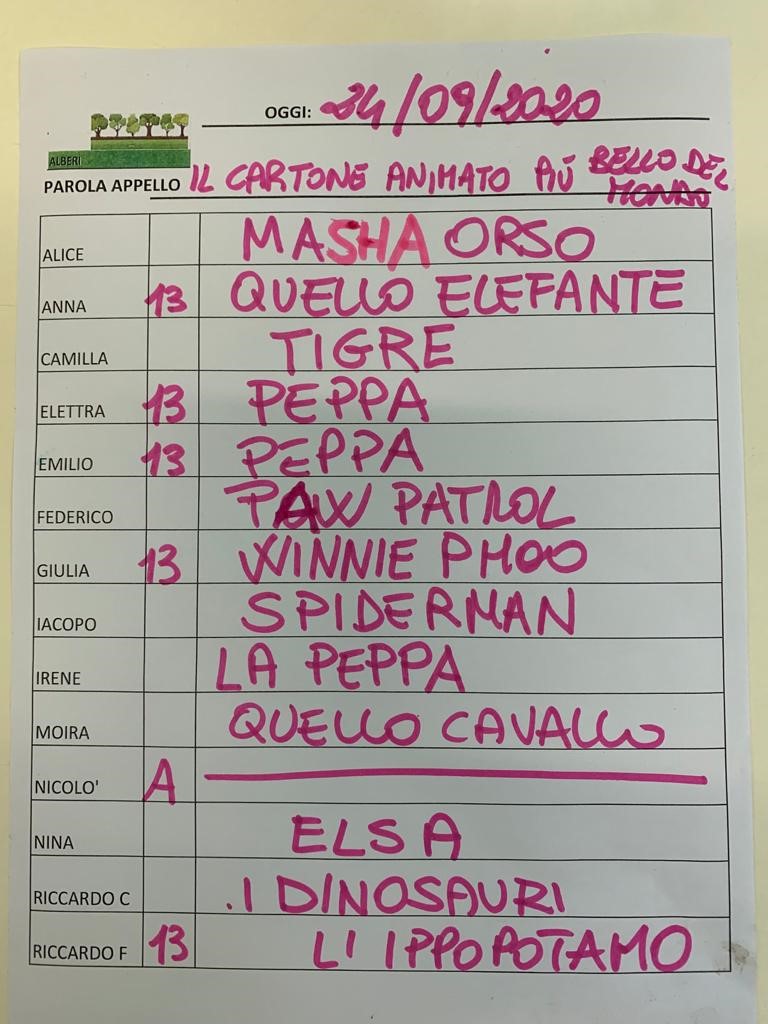 OGGI: 24/09/2020
ALBERI
PAROLA APPELLO IL CARTONE ANIMATO PIÙ BELLO DEL MONDO
ALICE MASHA ORSO
ANNA 13 QUELLO ELEFANTE
CAMILLA TIGRE
ELETTRA 13 PEPPA
EMILIO 13 PEPPA
FEDERICO PAW PATROL
GIULIA 13 WINNIE PHOO
IACOPO SPIDERMAN
IRENE LA PEPPA
MOIRA QUELLO CAVALLO
NICOLO' A
NINA ELSA
RICCARDO C .I DINOSAURI
RICCARDO F 13 L' IPPOPOTAMO